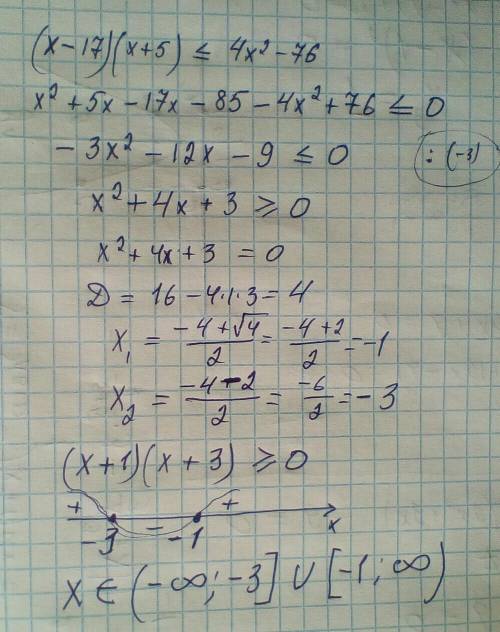 (x-17)(x+5) ≤ 4x²-76
x²+5x-17x-85-4x²+76 ≤ 0
-3x²-12x-9 ≤ 0 :(-3)
x²+4x+3 ≥ 0
x²+4x+3 = 0
Д = 16-4·1·3 = 4
x₁ = (-4+√4)/2 = (-4+2)/2 = -1
x₂ = (-4-2)/2 = -6/2 = -3
(x+1)(x+3) ≥ 0
+ - +
-3 -1 x
x ∈ (-∞; -3] ∪ [-1; ∞)